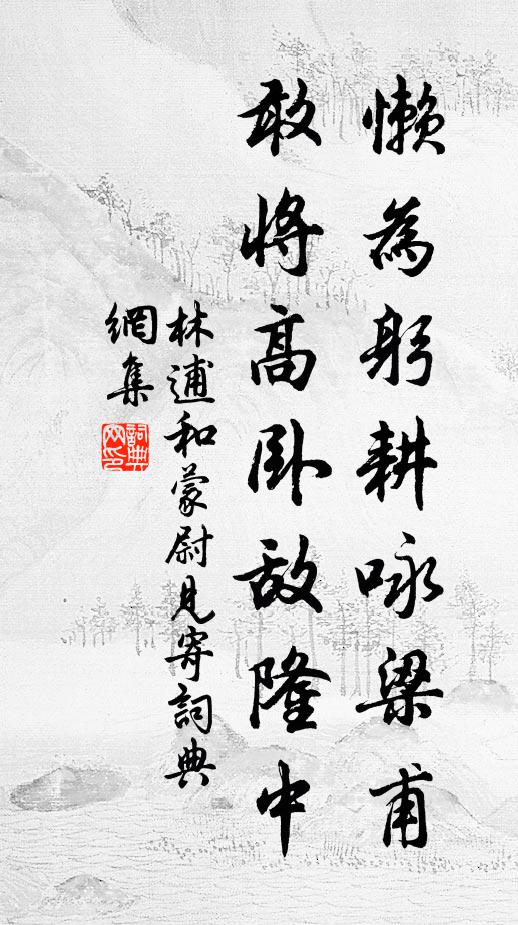 懶為躬耕咏梁甫
敢將高卧敵隆中
林逋和蒙尉見寄詞典
網集
詞典
网印